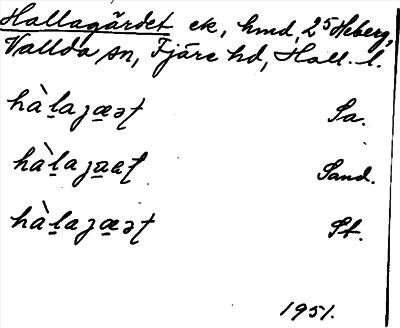 Hallagärdet ek, hmd, 2⁵ Heberg,
Vallda sn, Fjäre hd, Hall. l.
hàḻaja̱əʈ Sa.
hàḻaja̱aʈ Sand.
hàḻaja̱əʈ St.
1951.